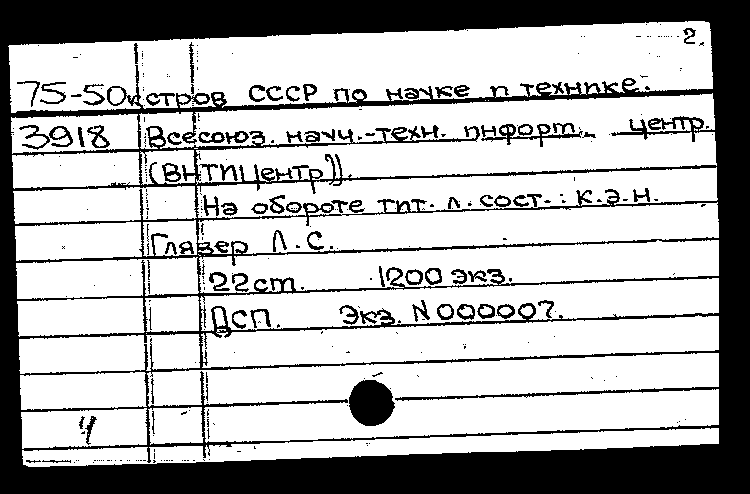 2.
75-50 кстров СССР по науке и технике.
3918 Всесоюз. науч.-техн. информ. центр.
(ВНТИЦентр)].
На обороте тит. л. сост.: к.э.н.
Глязер Л.С.
22 см. 1200 экз.
ДСП. Экз. N 000007.
4